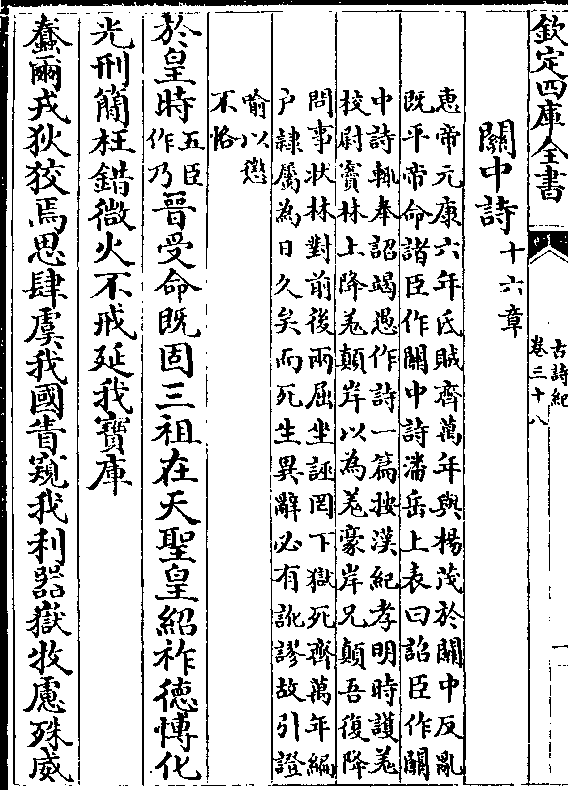 欽定四庫全書
古詩紀
卷三十八
一
關中詩十六章
惠帝元康六年氐賊齊萬年與楊茂於關中反亂
既平帝命諸臣作關中詩潘岳上表曰詔臣作關
中詩輒奉詔竭愚作詩一篇按漢紀孝明時護羌
校尉竇林上降羌顛岸以為羌豪岸兄顛吾復降
問事狀林對前後兩屈坐誣罔下獄死齊萬年編
户隸屬為日久矣而死生異辭必有訛謬故引證
喻以懲
不恪
於皇時五臣
作乃晉受命既固三祖在天聖皇紹祚德慱化
光刑簡枉錯微火不戒延我寶庫
蠢爾戎狄狡焉思肆虞我國眚窺我利器嶽牧慮殊威